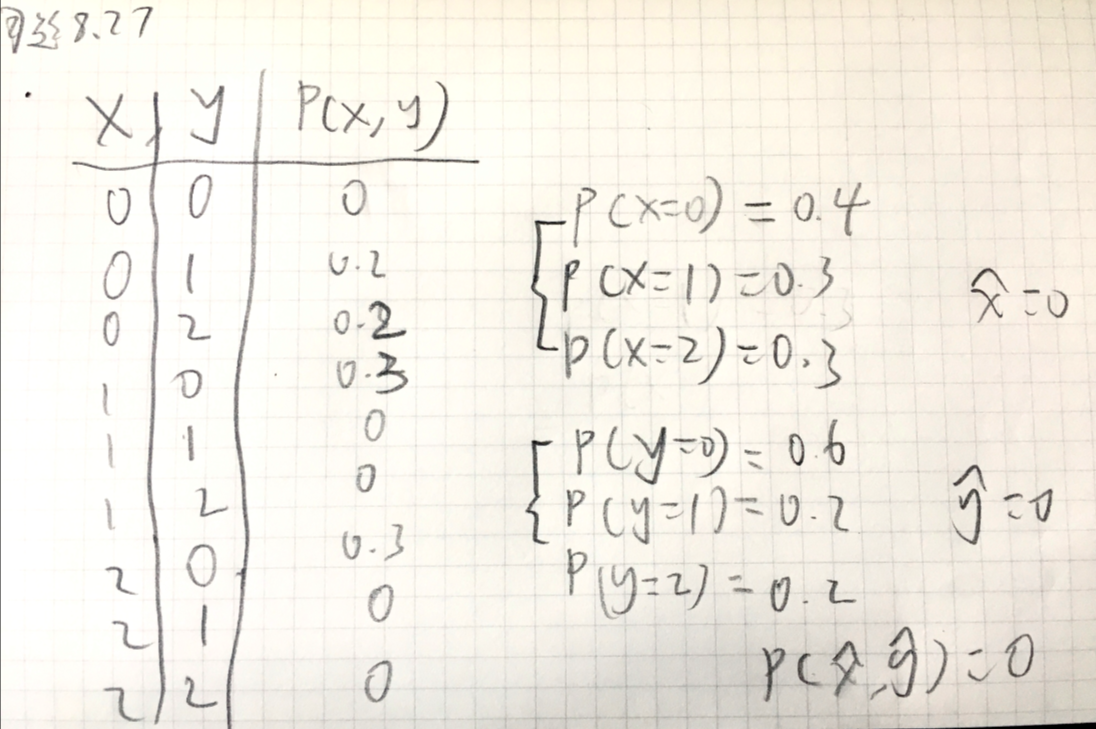 8.27
x y P(x,y)
0 0 0
0 1 0.2
0 2 0.2
1 0 0.3
1 1 0
1 2 0
2 0 0.3
2 1 0
2 2 0
P(x=0)=0.4
P(x=1)=0.3
P(x=2)=0.3
x̂=0
P(y=0)=0.6
P(y=1)=0.2
P(y=2)=0.2
ŷ=0
P(x̂,ŷ)=0